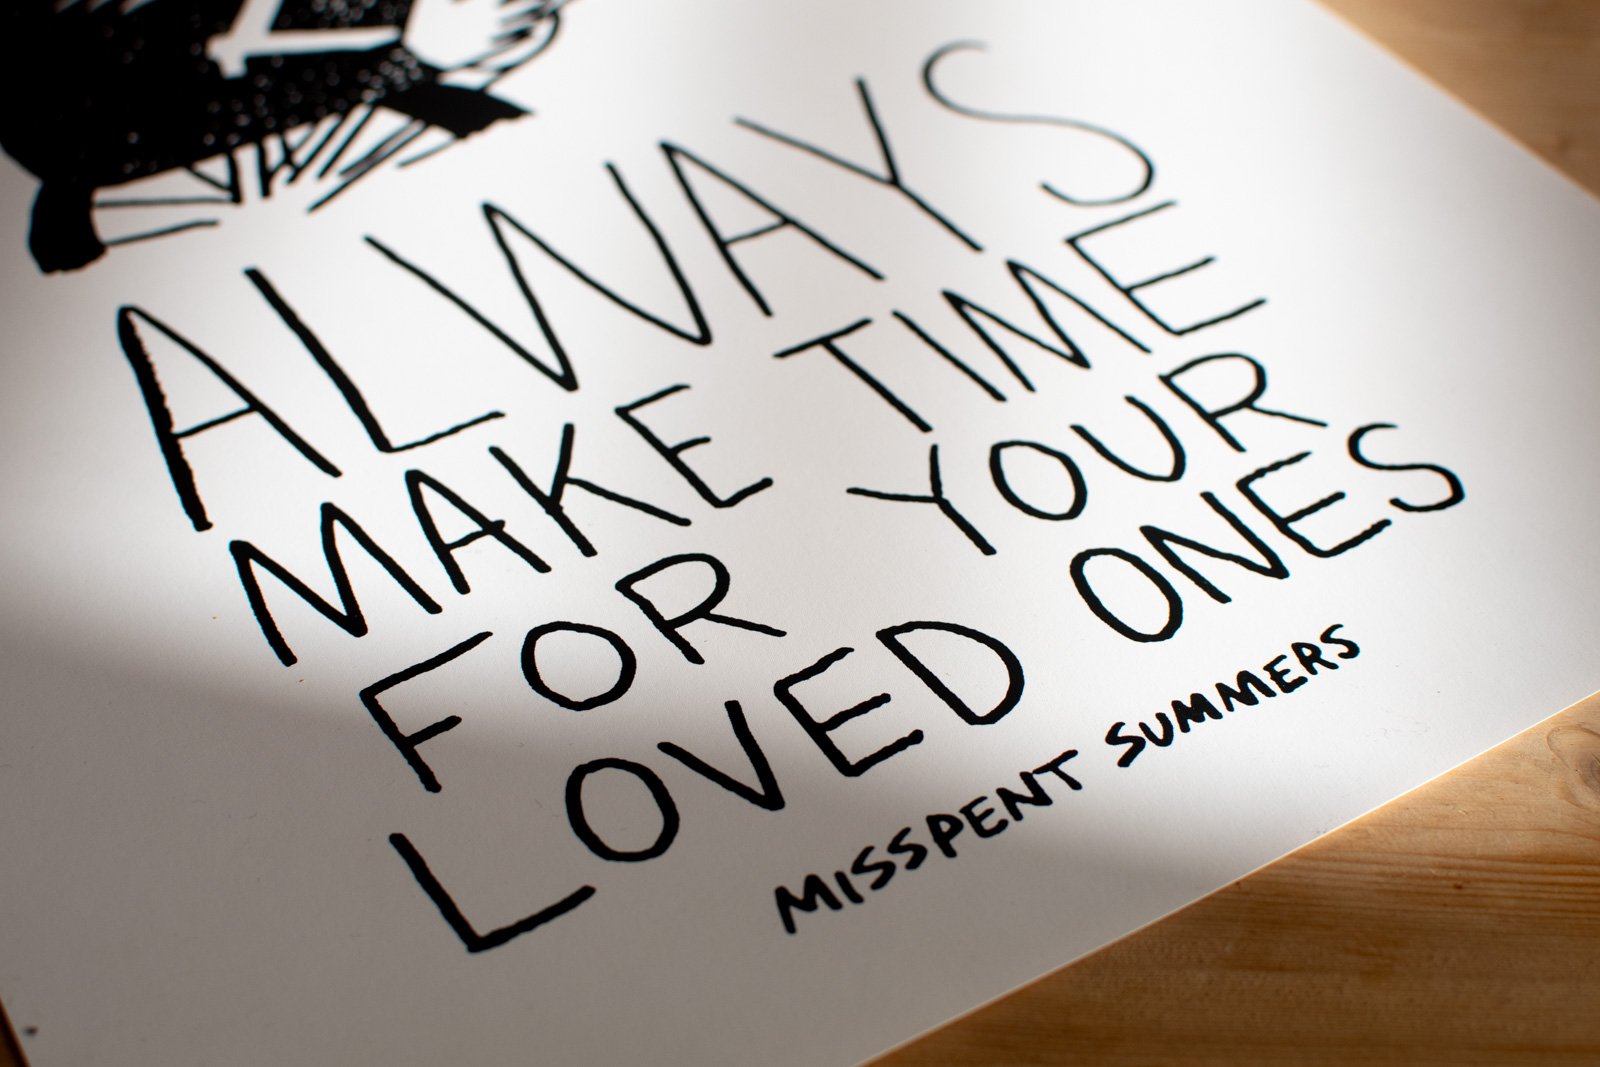 ALWAYS
MAKE TIME
FOR YOUR
LOVED ONES
MISSPENT SUMMERS